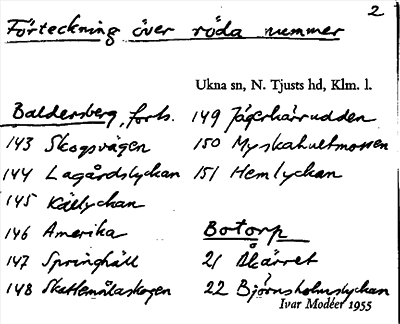 2
Förteckning över röda nummer
Ukna sn, N. Tjusts hd, Klm. l.
Baldersberg, forts.
143 Skogsvägen
144 Lagårdslyckan
145 Källyckan
146 Amerika
147 Springhäll
148 Skattemålaskogen
149 Jägerkärrudden
150 Myskahultmossen
151 Hemlyckan
Botorp
21 Alkärret
22 Björnsholmslyckan
Ivar Modéer 1955